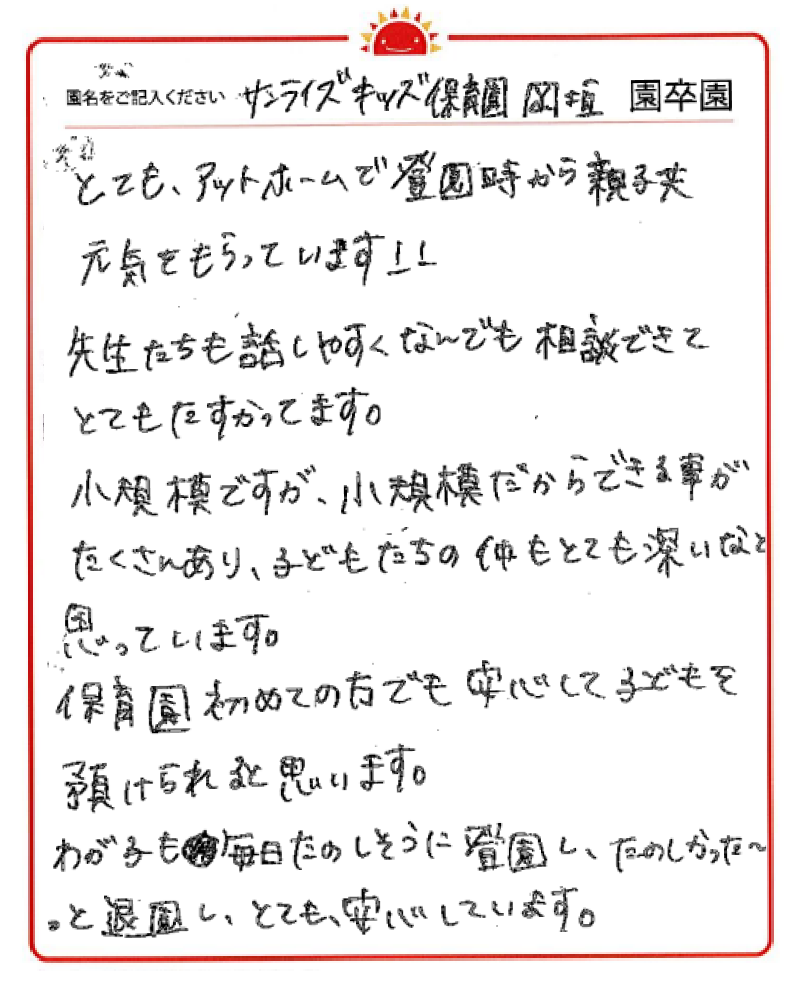 園名をご記入ください サンライズキッズ保育園 図垣 園卒園
とても、アットホームで登園時から親子共
元気をもらっています！！
先生たちも話しやすくなんでも相談できて
とてもたすかってます。
小規模ですが、小規模だからできる事が
たくさんあり、子どもたちの仲もとても深いなと
思っています。
保育園初めての方でも安心して子どもを
預けられると思います。
わが子も毎日たのしそうに登園し、たのしかった〜
。と退園し、とても、安心しています。